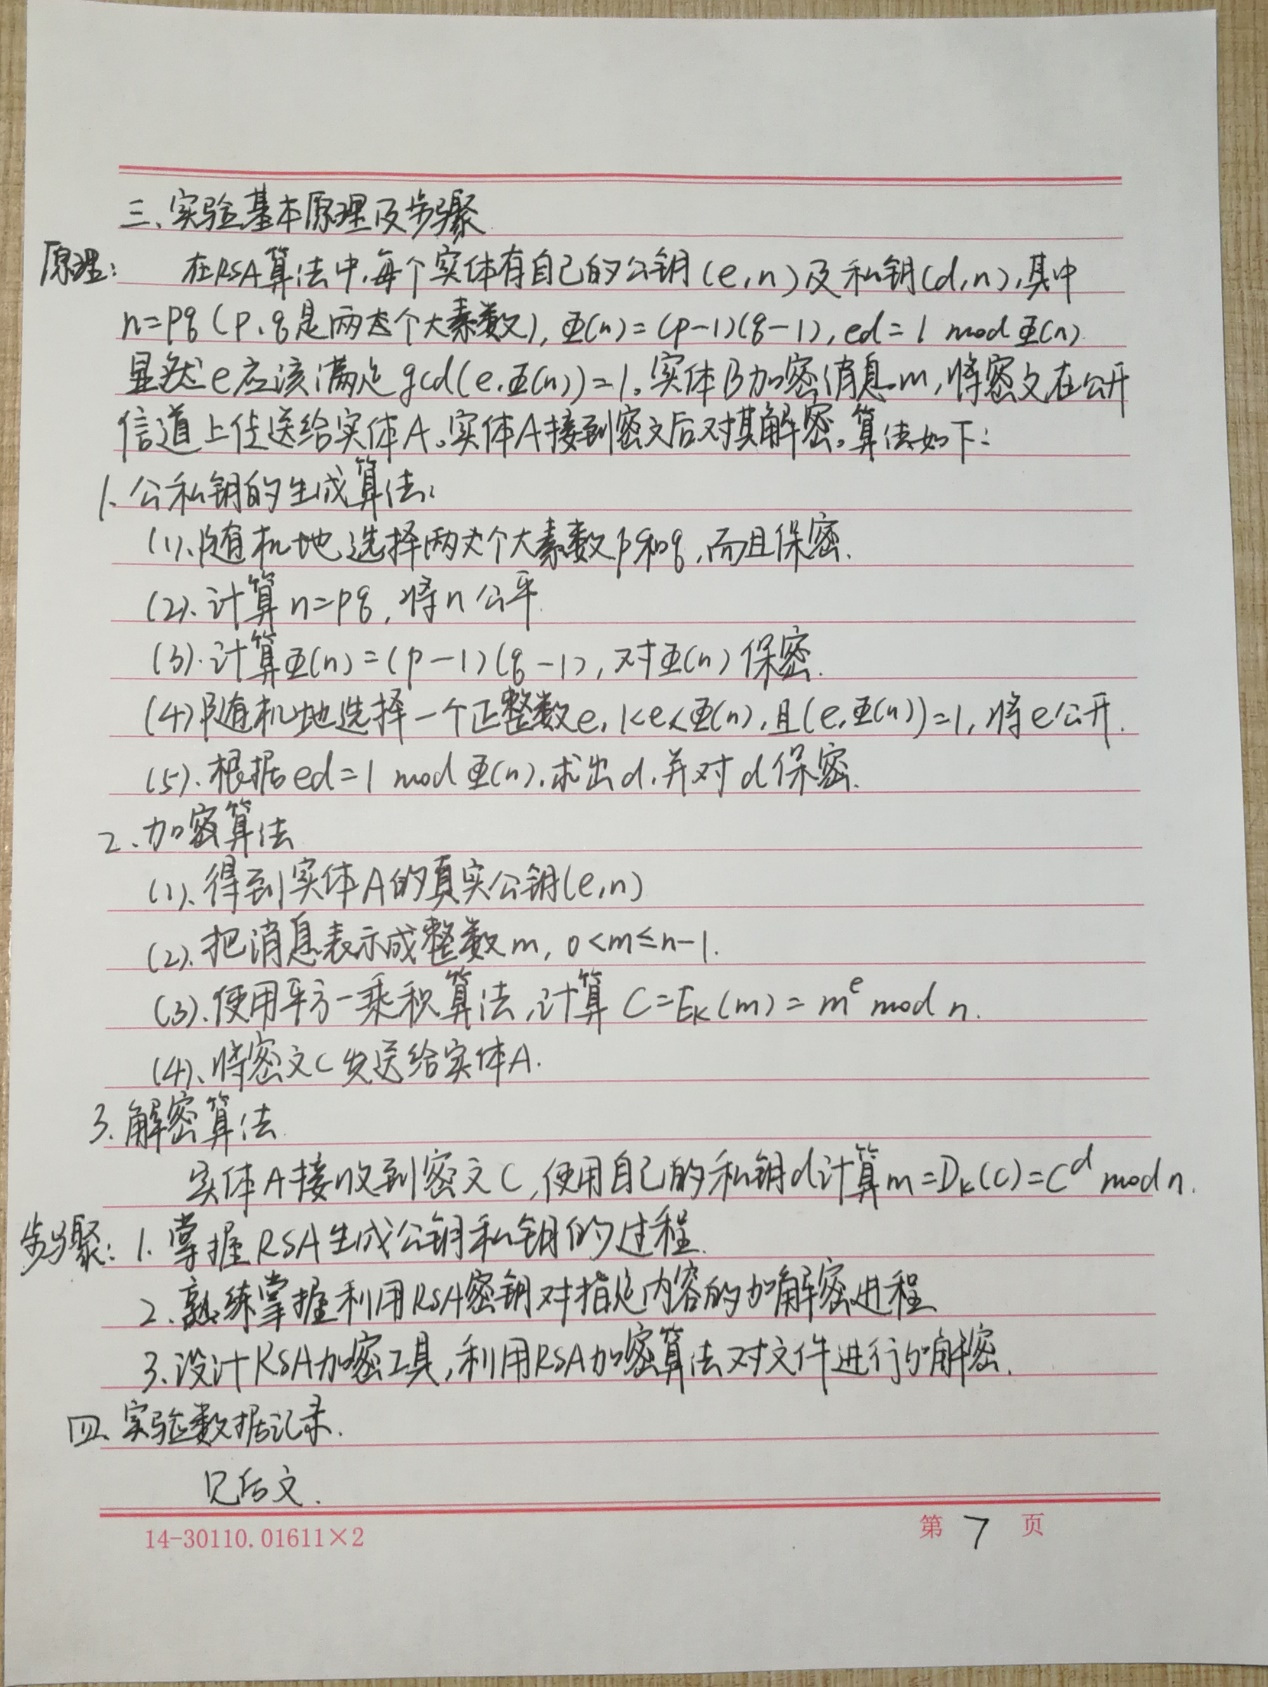 三、实验基本原理及步骤
原理: 在RSA算法中,每个实体有自己的公钥(e,n)及私钥(d,n),其中
n=pq(p、q是两个大素数), Φ(n)=(p-1)(q-1), ed=1 mod Φ(n)
显然e应该满足gcd(e,Φ(n))=1。实体B加密消息m,将密文在公开
信道上传送给实体A。实体A接到密文后对其解密。算法如下:
1. 公私钥的生成算法:
(1).随机地选择两个大素数p和q,而且保密.
(2).计算n=pq,将n公平
(3).计算Φ(n)=(p-1)(q-1),对Φ(n)保密.
(4)随机地选择一个正整数e,1<e<Φ(n),且(e,Φ(n))=1,将e公开.
(5).根据ed=1 mod Φ(n),求出d,并对d保密.
2.加密算法
(1).得到实体A的真实公钥(e,n)
(2).把消息表示成整数m, 0<m≤n-1.
(3).使用平方-乘积算法,计算 C=Eₖ(m)=mᵉ mod n.
(4).将密文C发送给实体A.
3.解密算法
实体A接收到密文C,使用自己的私钥d计算m=Dₖ(C)=Cᵈ mod n.
步骤:1.掌握RSA生成公钥私钥的过程.
2.熟练掌握利用RSA密钥对指定内容的加解密进程
3.设计RSA加密工具,利用RSA加密算法对文件进行加解密.
四、实验数据记录.
见后文.
14-30110.01611×2 第 7 页